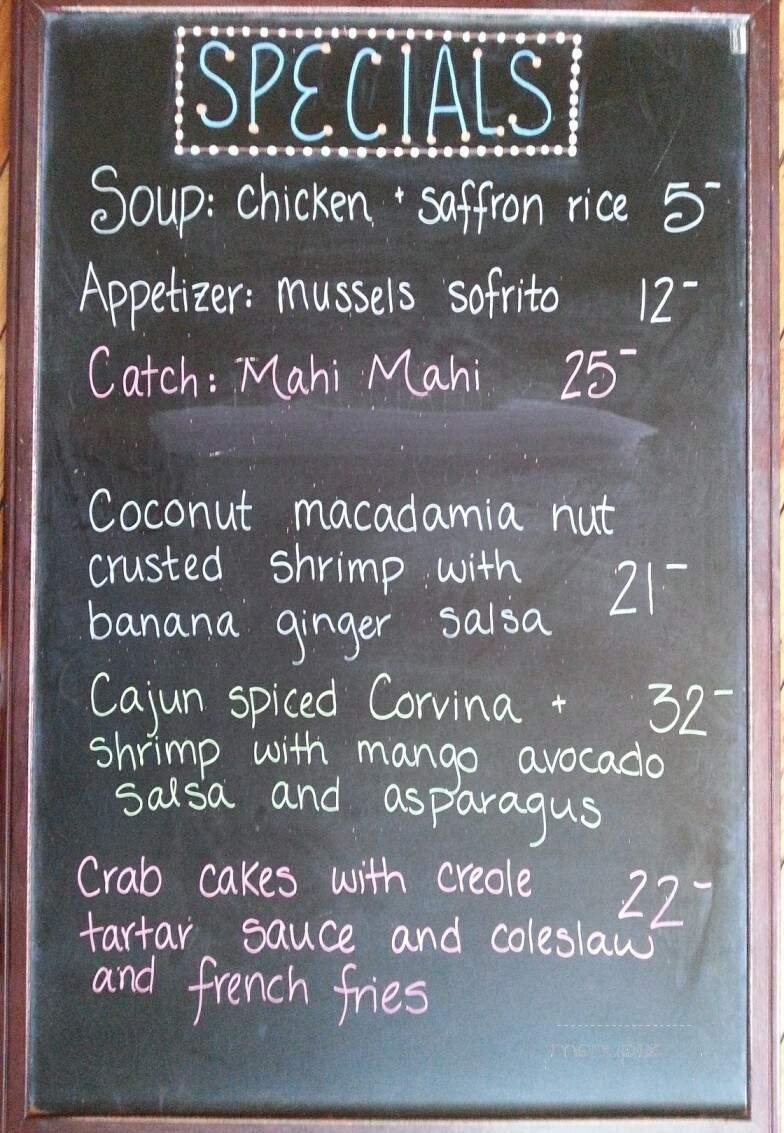 SPECIALS
Soup: chicken + saffron rice 5-
Appetizer: mussels sofrito 12-
Catch: Mahi Mahi 25-
Coconut macadamia nut
crusted shrimp with 21-
banana ginger salsa
Cajun spiced Corvina + 32-
shrimp with mango avocado
salsa and asparagus
Crab cakes with creole 22-
tartar sauce and coleslaw
and french fries
menupix